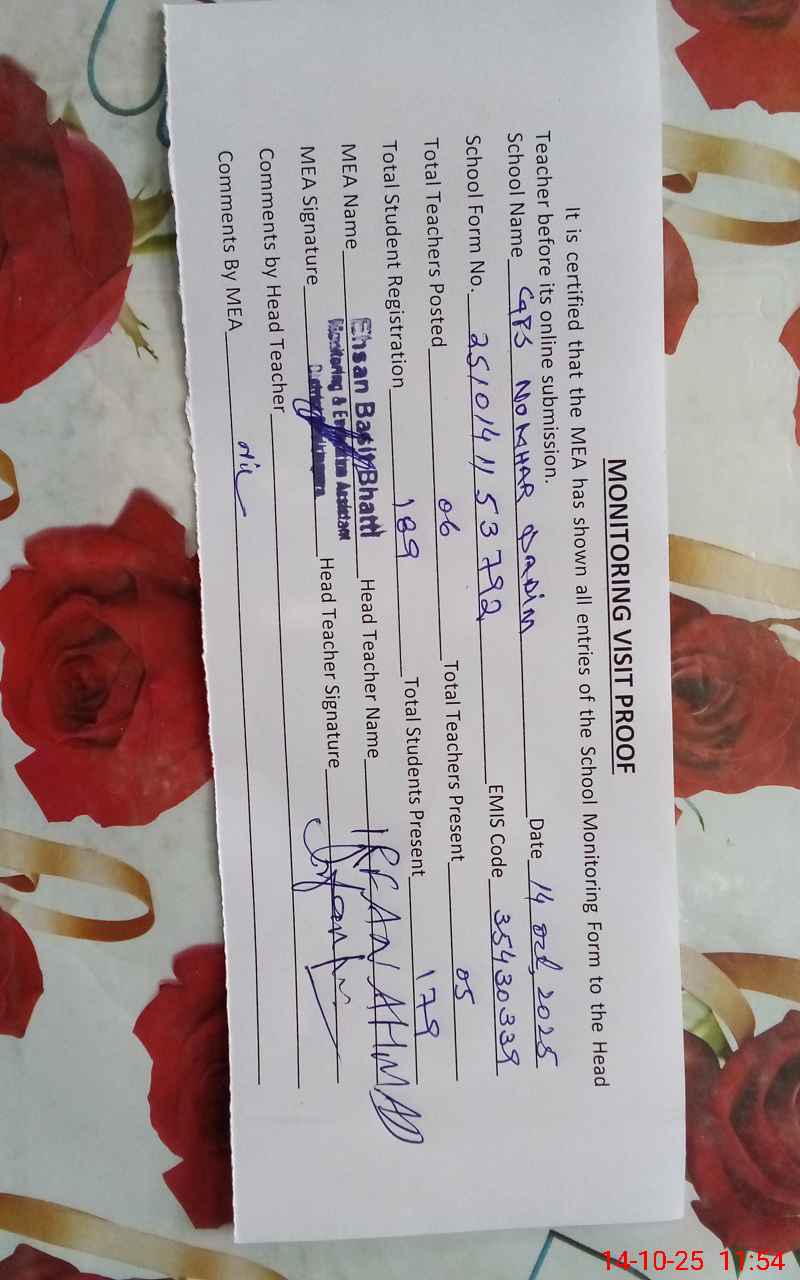 MONITORING VISIT PROOF
It is certified that the MEA has shown all entries of the School Monitoring Form to the Head
Teacher before its online submission.
School Name GPS NOKHAR QADIM Date 14 Oct, 2025
School Form No. 25101411 53792 EMIS Code 35430339
Total Teachers Posted 06 Total Teachers Present 05
Total Student Registration 189 Total Students Present 179
MEA Name Ehsan Basir Bhatti Head Teacher Name IRFAN AHMAD
Monitoring & Evaluation Assistant
MEA Signature District Head Teacher Signature
Comments by Head Teacher
Comments By MEA Nil
14-10-25 11:54